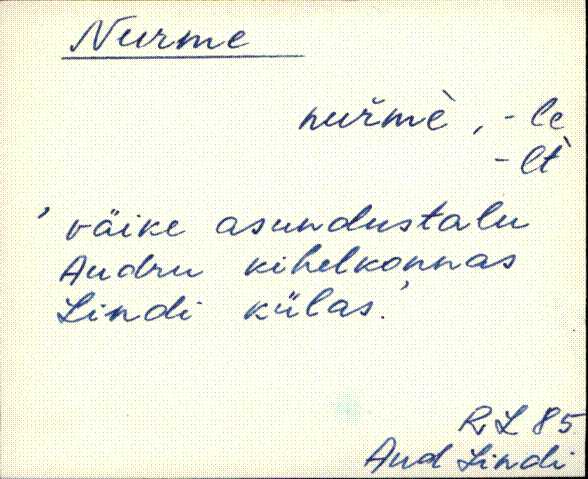 Nurme
nuřmè, -le
-lt̀
' väike asundustalu
Audru kihelkonnas
Lindi külas.'
R.L 85
Aud Lindi